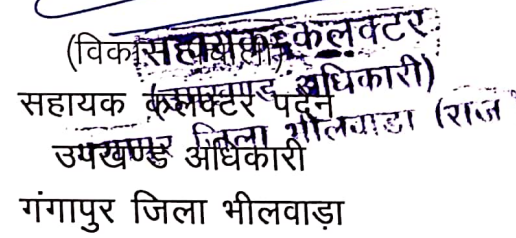 सहायक कलक्टर
(उपखण्ड अधिकारी)
गंगापुर जिला भीलवाडा (राज
सहायक कलक्टर पदेन
उपखण्ड अधिकारी
गंगापुर जिला भीलवाड़ा